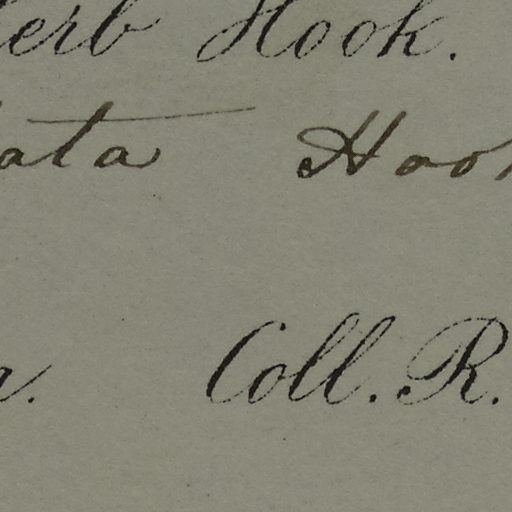 erb Hook.
ata Hoo
a. Coll. R.